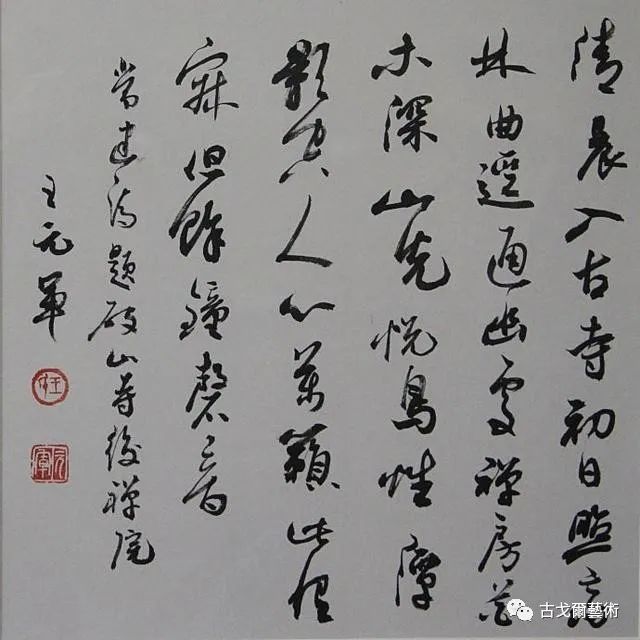 清晨入古寺初日照高
林曲逕通幽處禪房花
木深山光悅鳥性潭
影空人心萬籟此俱
寂但餘鐘磬音
常建詩題破山寺後禪院
王元軍
元軍
古戈爾藝術